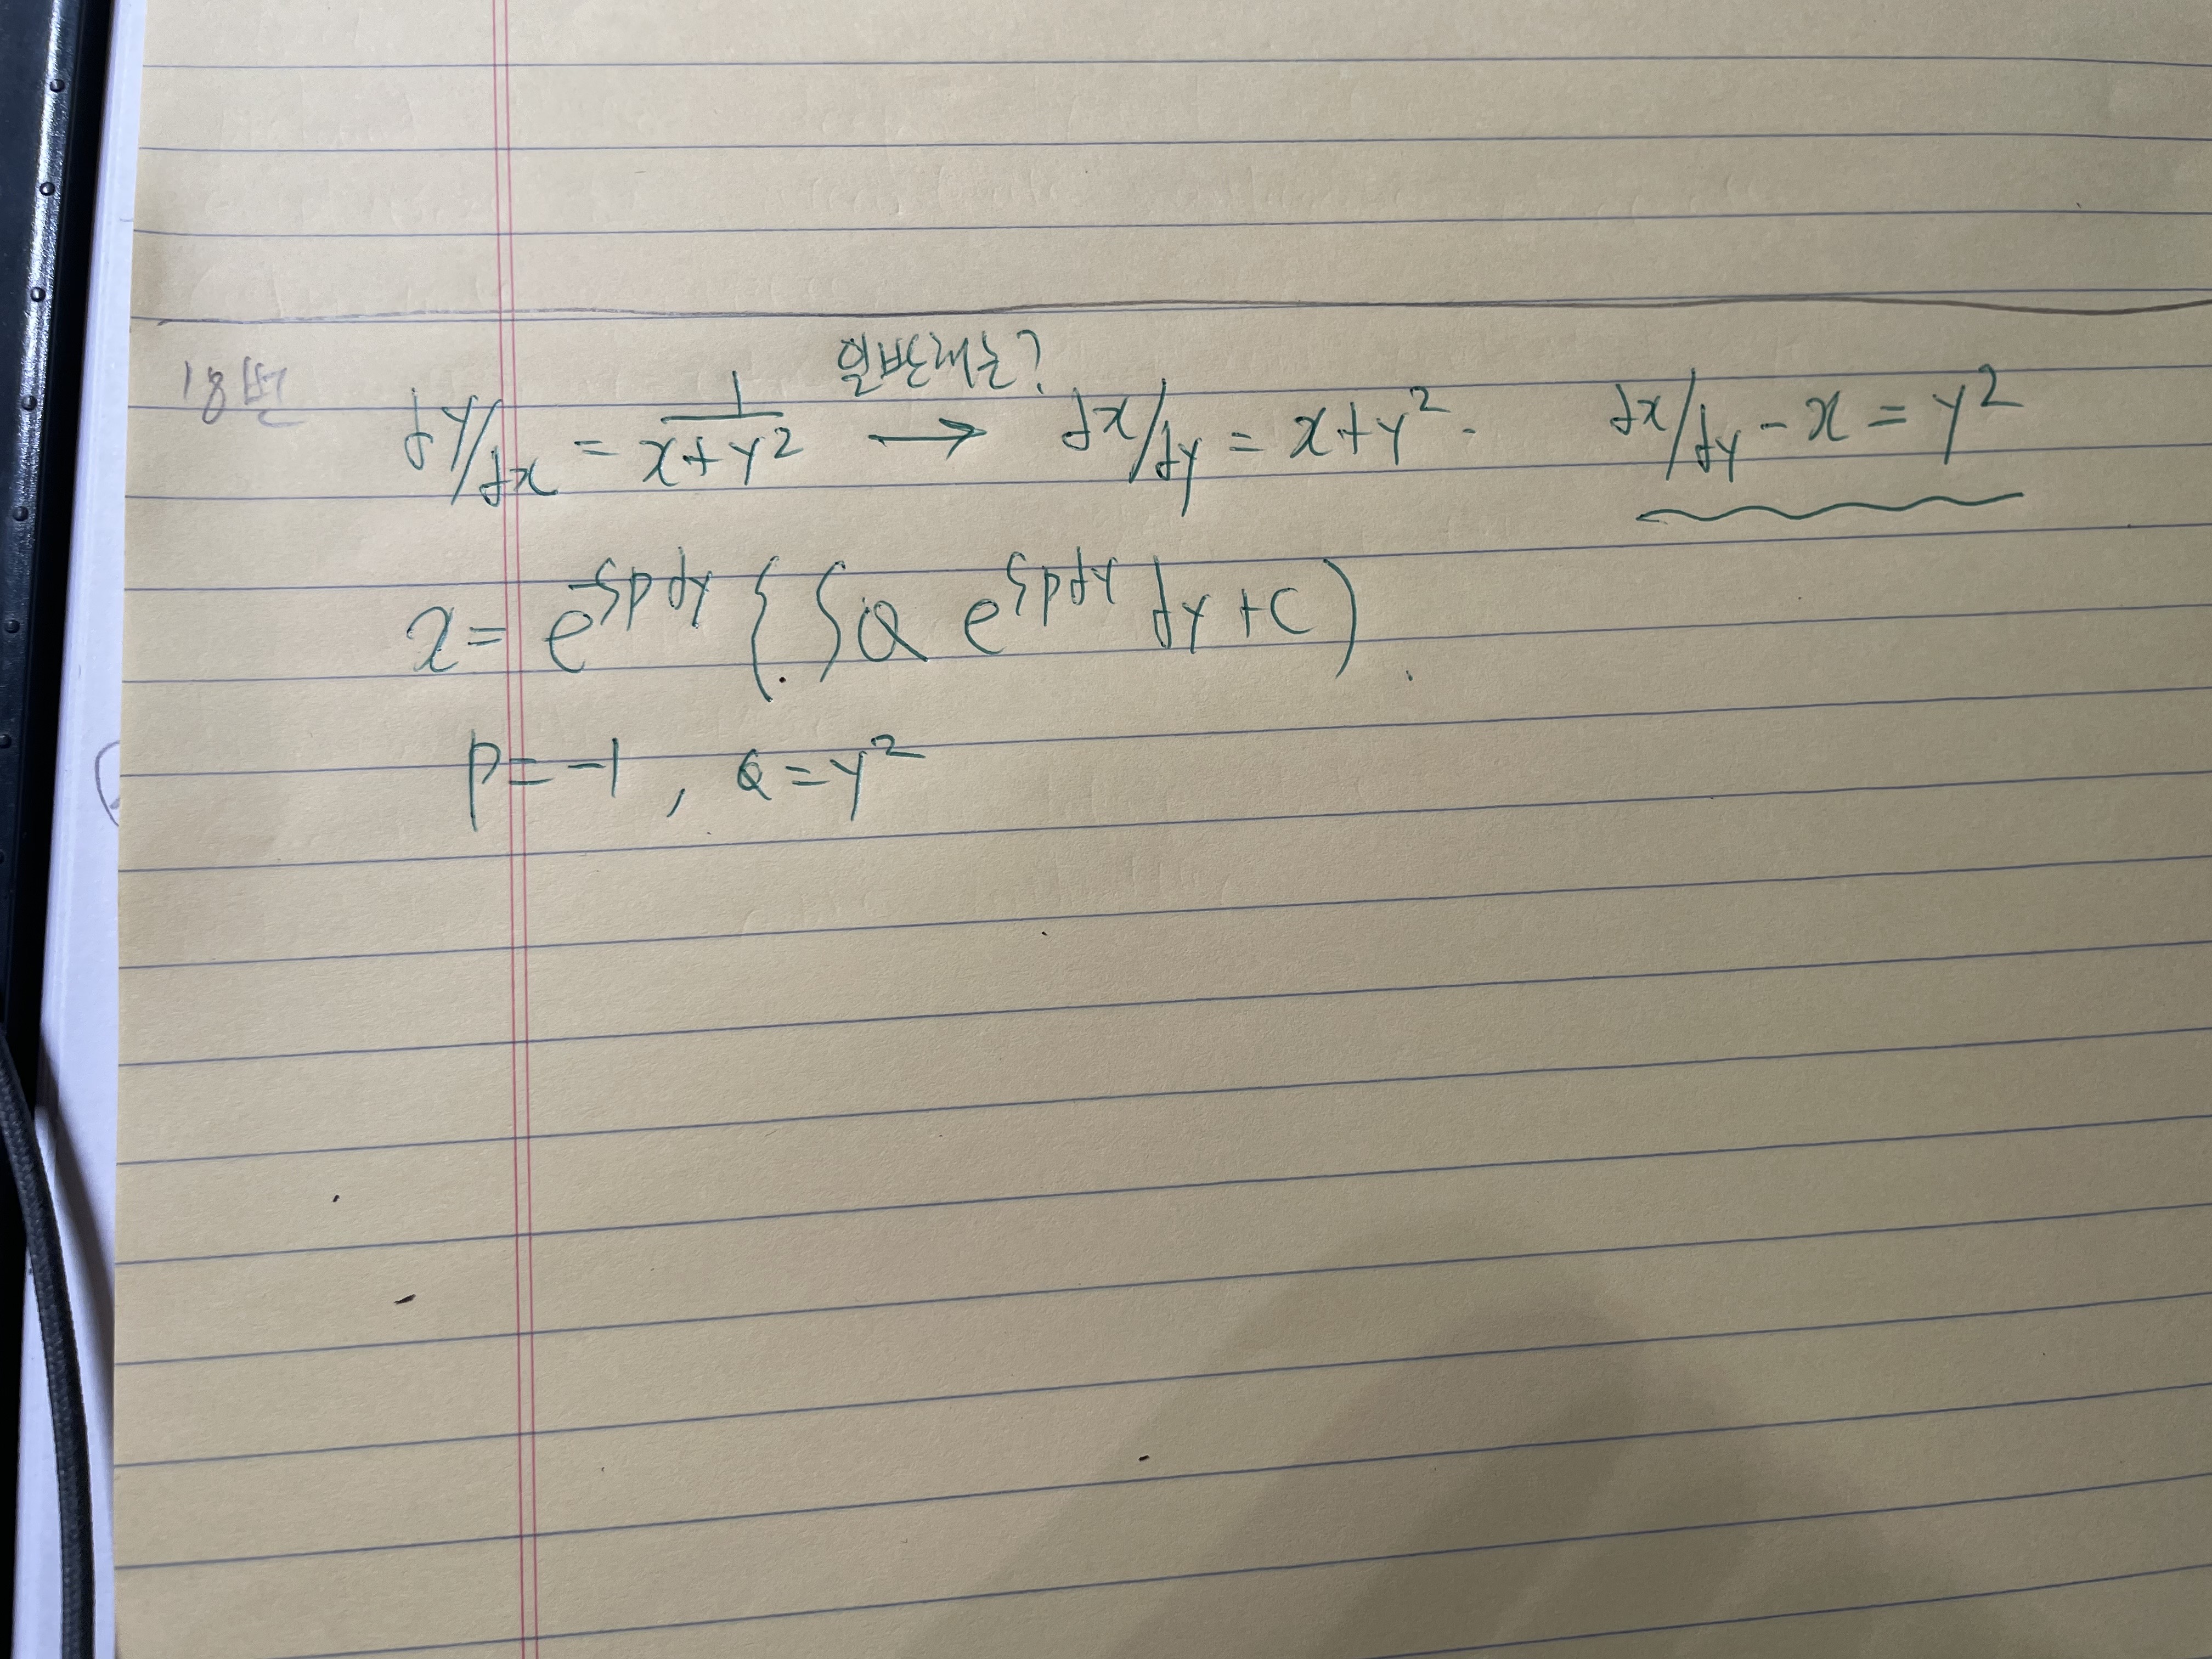 일반해는?
18번 dy/dx = 1/(x+y²) → dx/dy = x+y². dx/dy - x = y²
x = e^(-∫pdy) { ∫Q e^(∫pdy) dy + C )
p = -1 , Q = y²